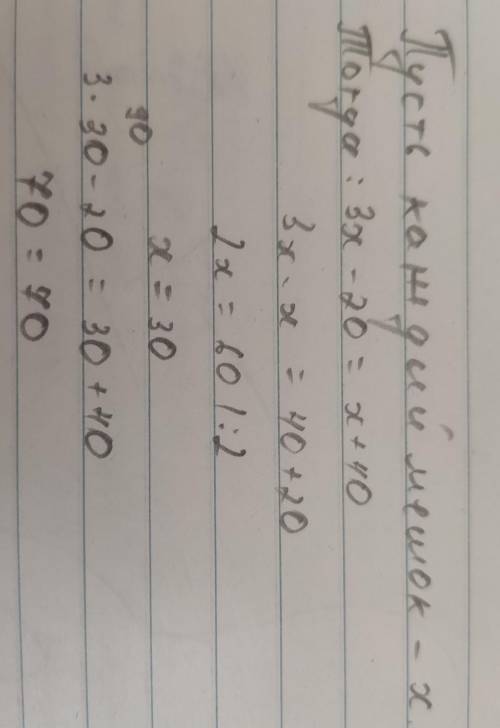 Пусть каждый мешок - x
Тогда: 3x - 20 = x + 40
3x - x = 40 + 20
2x = 60 |:2
x = 30
90
3 · 30 - 20 = 30 + 40
70 = 70